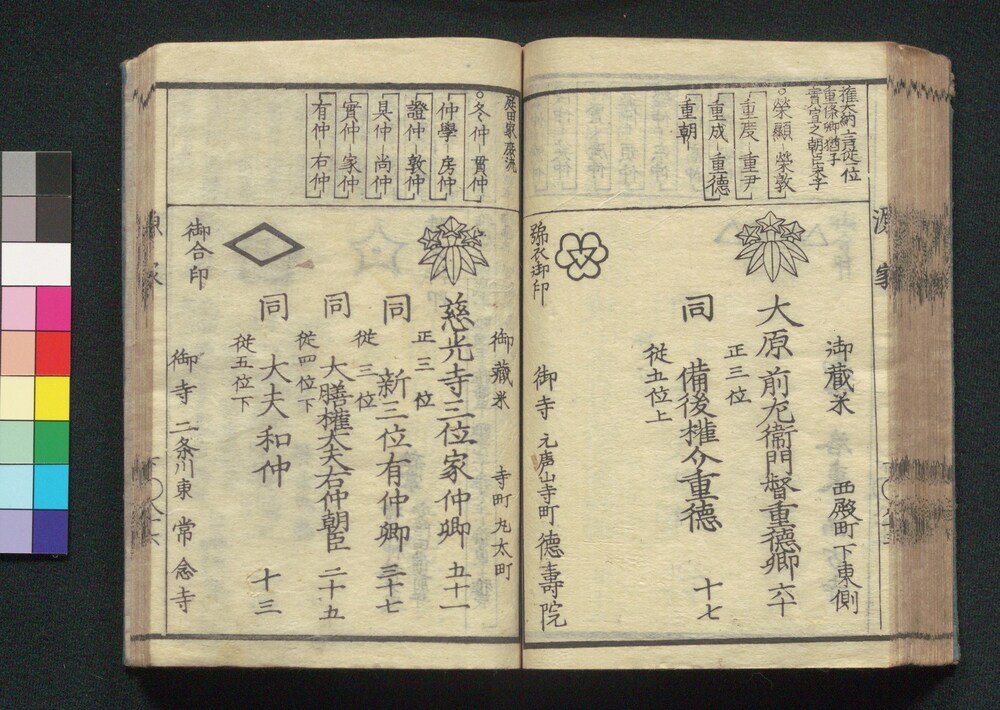 源家
権大納言従一位
重條卿猶子
實宣之朝臣末子
榮顯-榮敦
重慶-重尹
重成-重德
重朝-
御藏米 西殿町下東側
大原前左衞門督重德卿 六十
正三位
同 備後権介重德 十七
従五位上
號衣御印
御寺 元唐山寺町 德壽院
庭田家庶流
冬仲-貫仲
仲學-房仲
證仲-敦仲
具仲-尚仲
實仲-家仲
有仲-右仲
御藏米 寺町丸太町
慈光寺三位家仲卿 五十一
正三位
同 新三位有仲卿 三十七
従三位
同 大膳権大夫右仲朝臣 二十五
従四位下
同 大夫和仲 十三
従五位下
御合印
御寺 二条川東 常念寺
源家